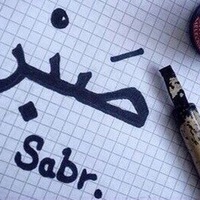 صَبْر
Sabr.